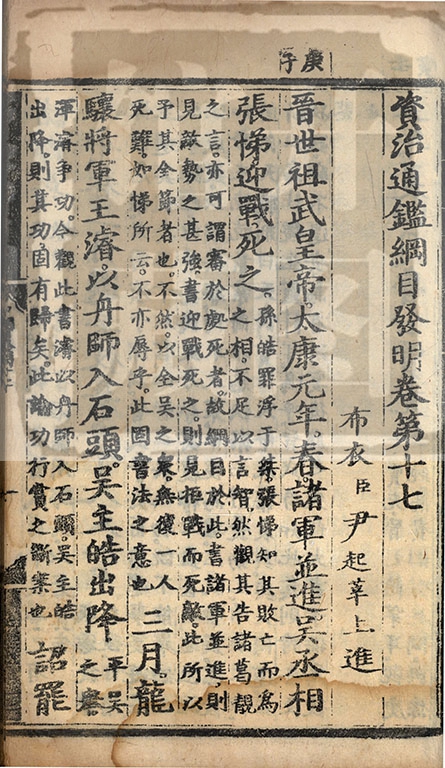 庚子
資治通鑑綱目發明卷第十七
布衣臣尹起莘上進
晉世祖武皇帝。太康元年。春。諸軍並進吳丞相
張悌迎戰。死之
孫皓罪浮于桀。張悌知其敗亡而爲
之相。不足以言智然觀其告諸葛靚
之言。亦可謂審於處死者。故綱目於此。書諸軍並進。則
見敵勢之甚強。書迎戰死之則見拒戰而死難。此所以
予其全節者也。不然。以全吳之衆。無復一人
死難。如悌所云。不亦辱乎。此固書法之意也
三月。龍
驤將軍王濬。以舟師入石頭。吳主皓出降
平吳
之
渾濬爭功。今觀此書濬以舟師入石頭。吳主皓
出降。則其功固有歸矣。此論功行賞之斷案也
詔罷